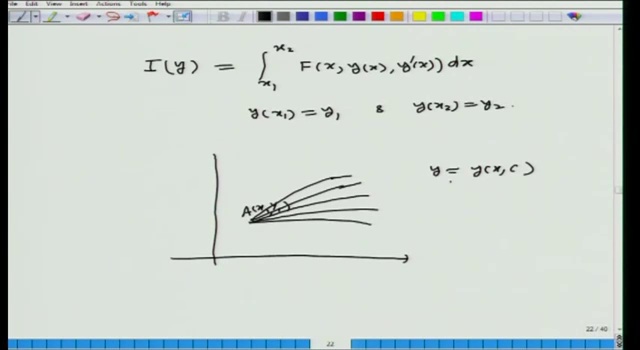 Edit View Insert Actions Tools Help
I(y) = ∫_{x₁}^{x₂} F(x, y(x), y'(x)) dx
y(x₁) = y₁ & y(x₂) = y₂.
y = y(x, c)
A(x₁, y₁)
22 / 40
22